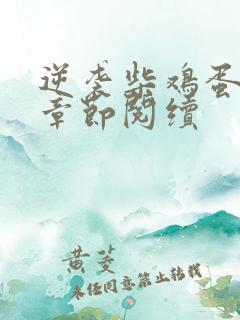 逆袭柴鸡蛋
章节阅续
黄菱
未经同意禁止转载